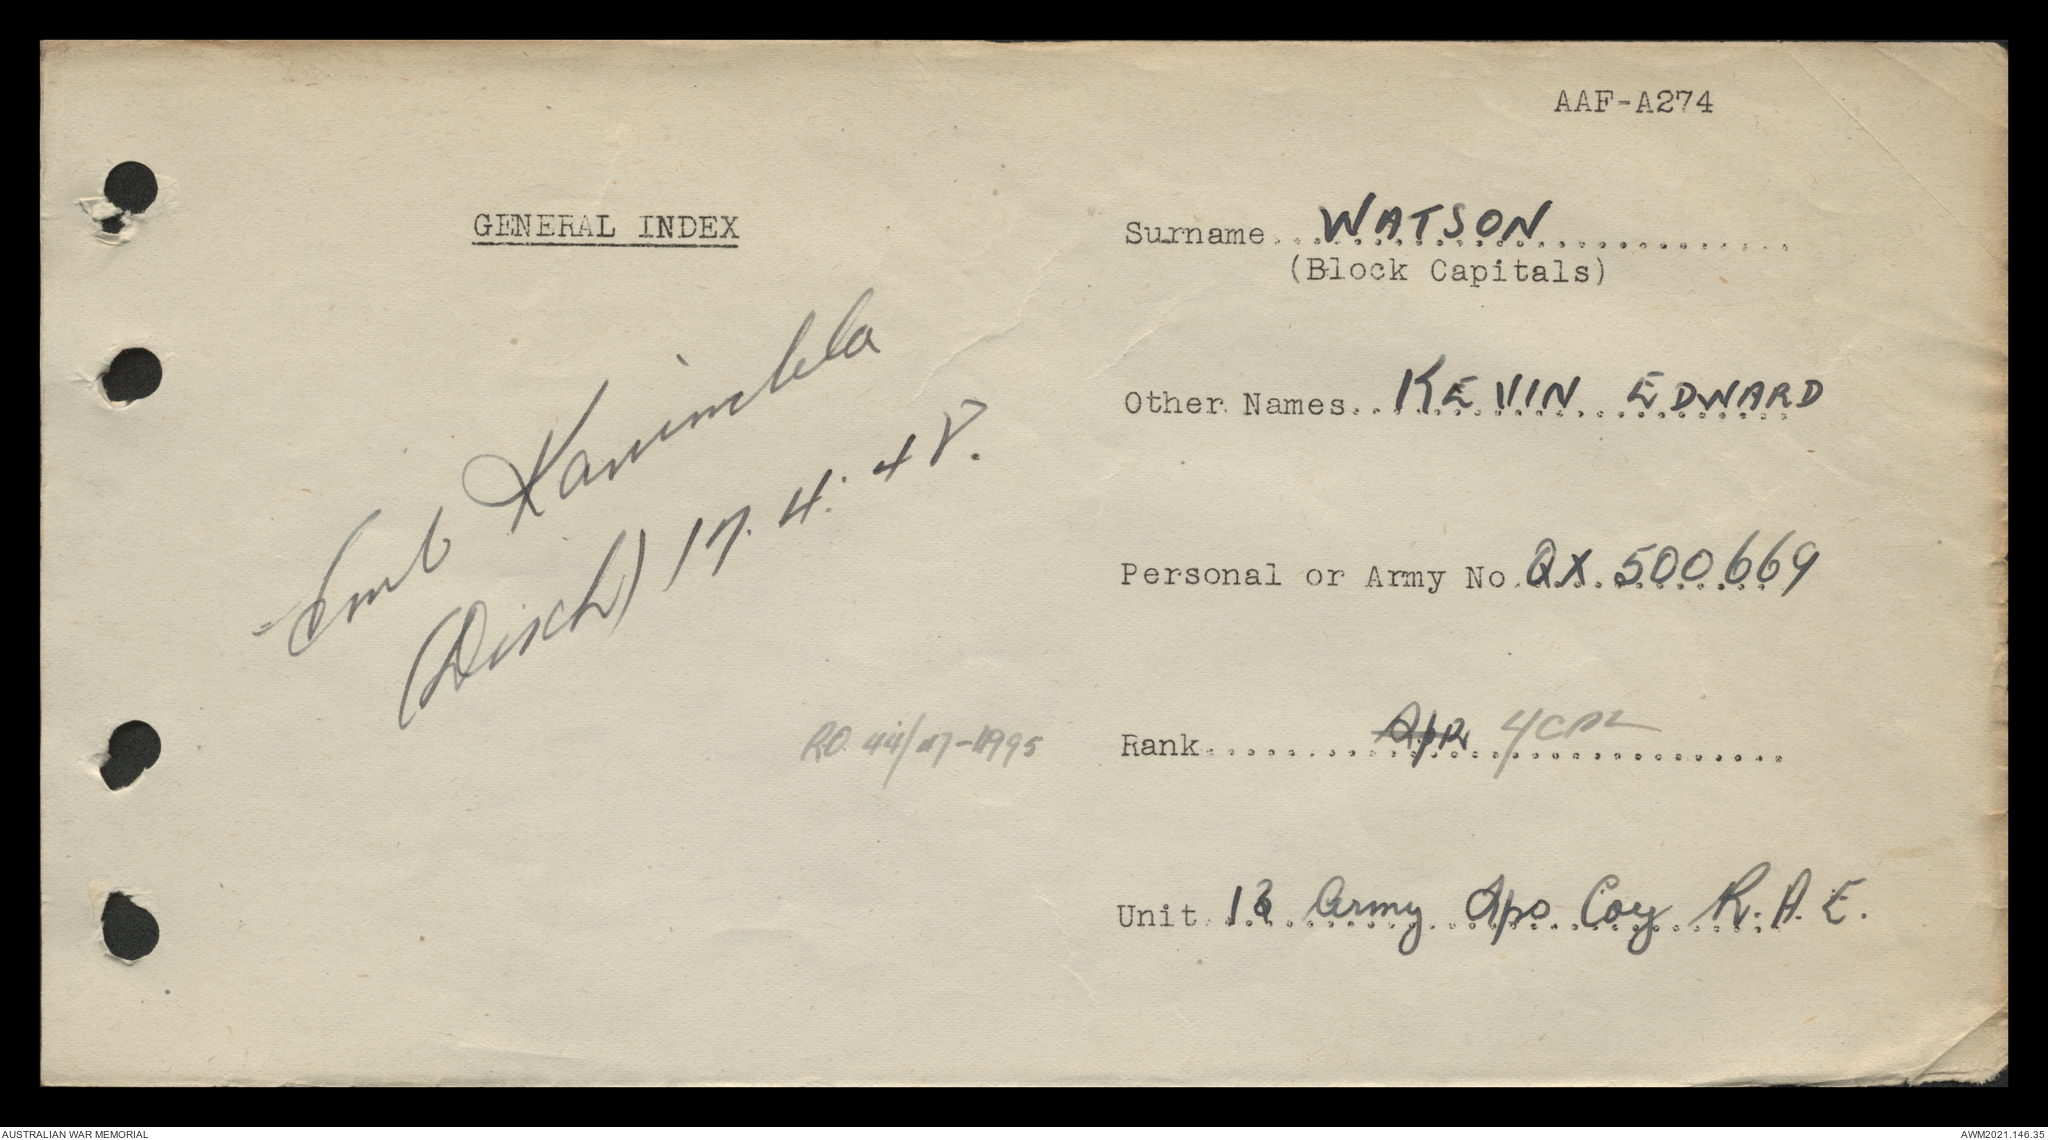 AAF-A274
GENERAL INDEX
Surname WATSON
(Block Capitals)
Other Names KEVIN EDWARD
Personal or Army No. QX 500669
Emb Kanimbla
(Disch) 17.4.48.
RO 44/47-1995
Rank Spr
Unit 13 Army Tps Coy R.A.E.
AUSTRALIAN WAR MEMORIAL
AWM2021.146.35